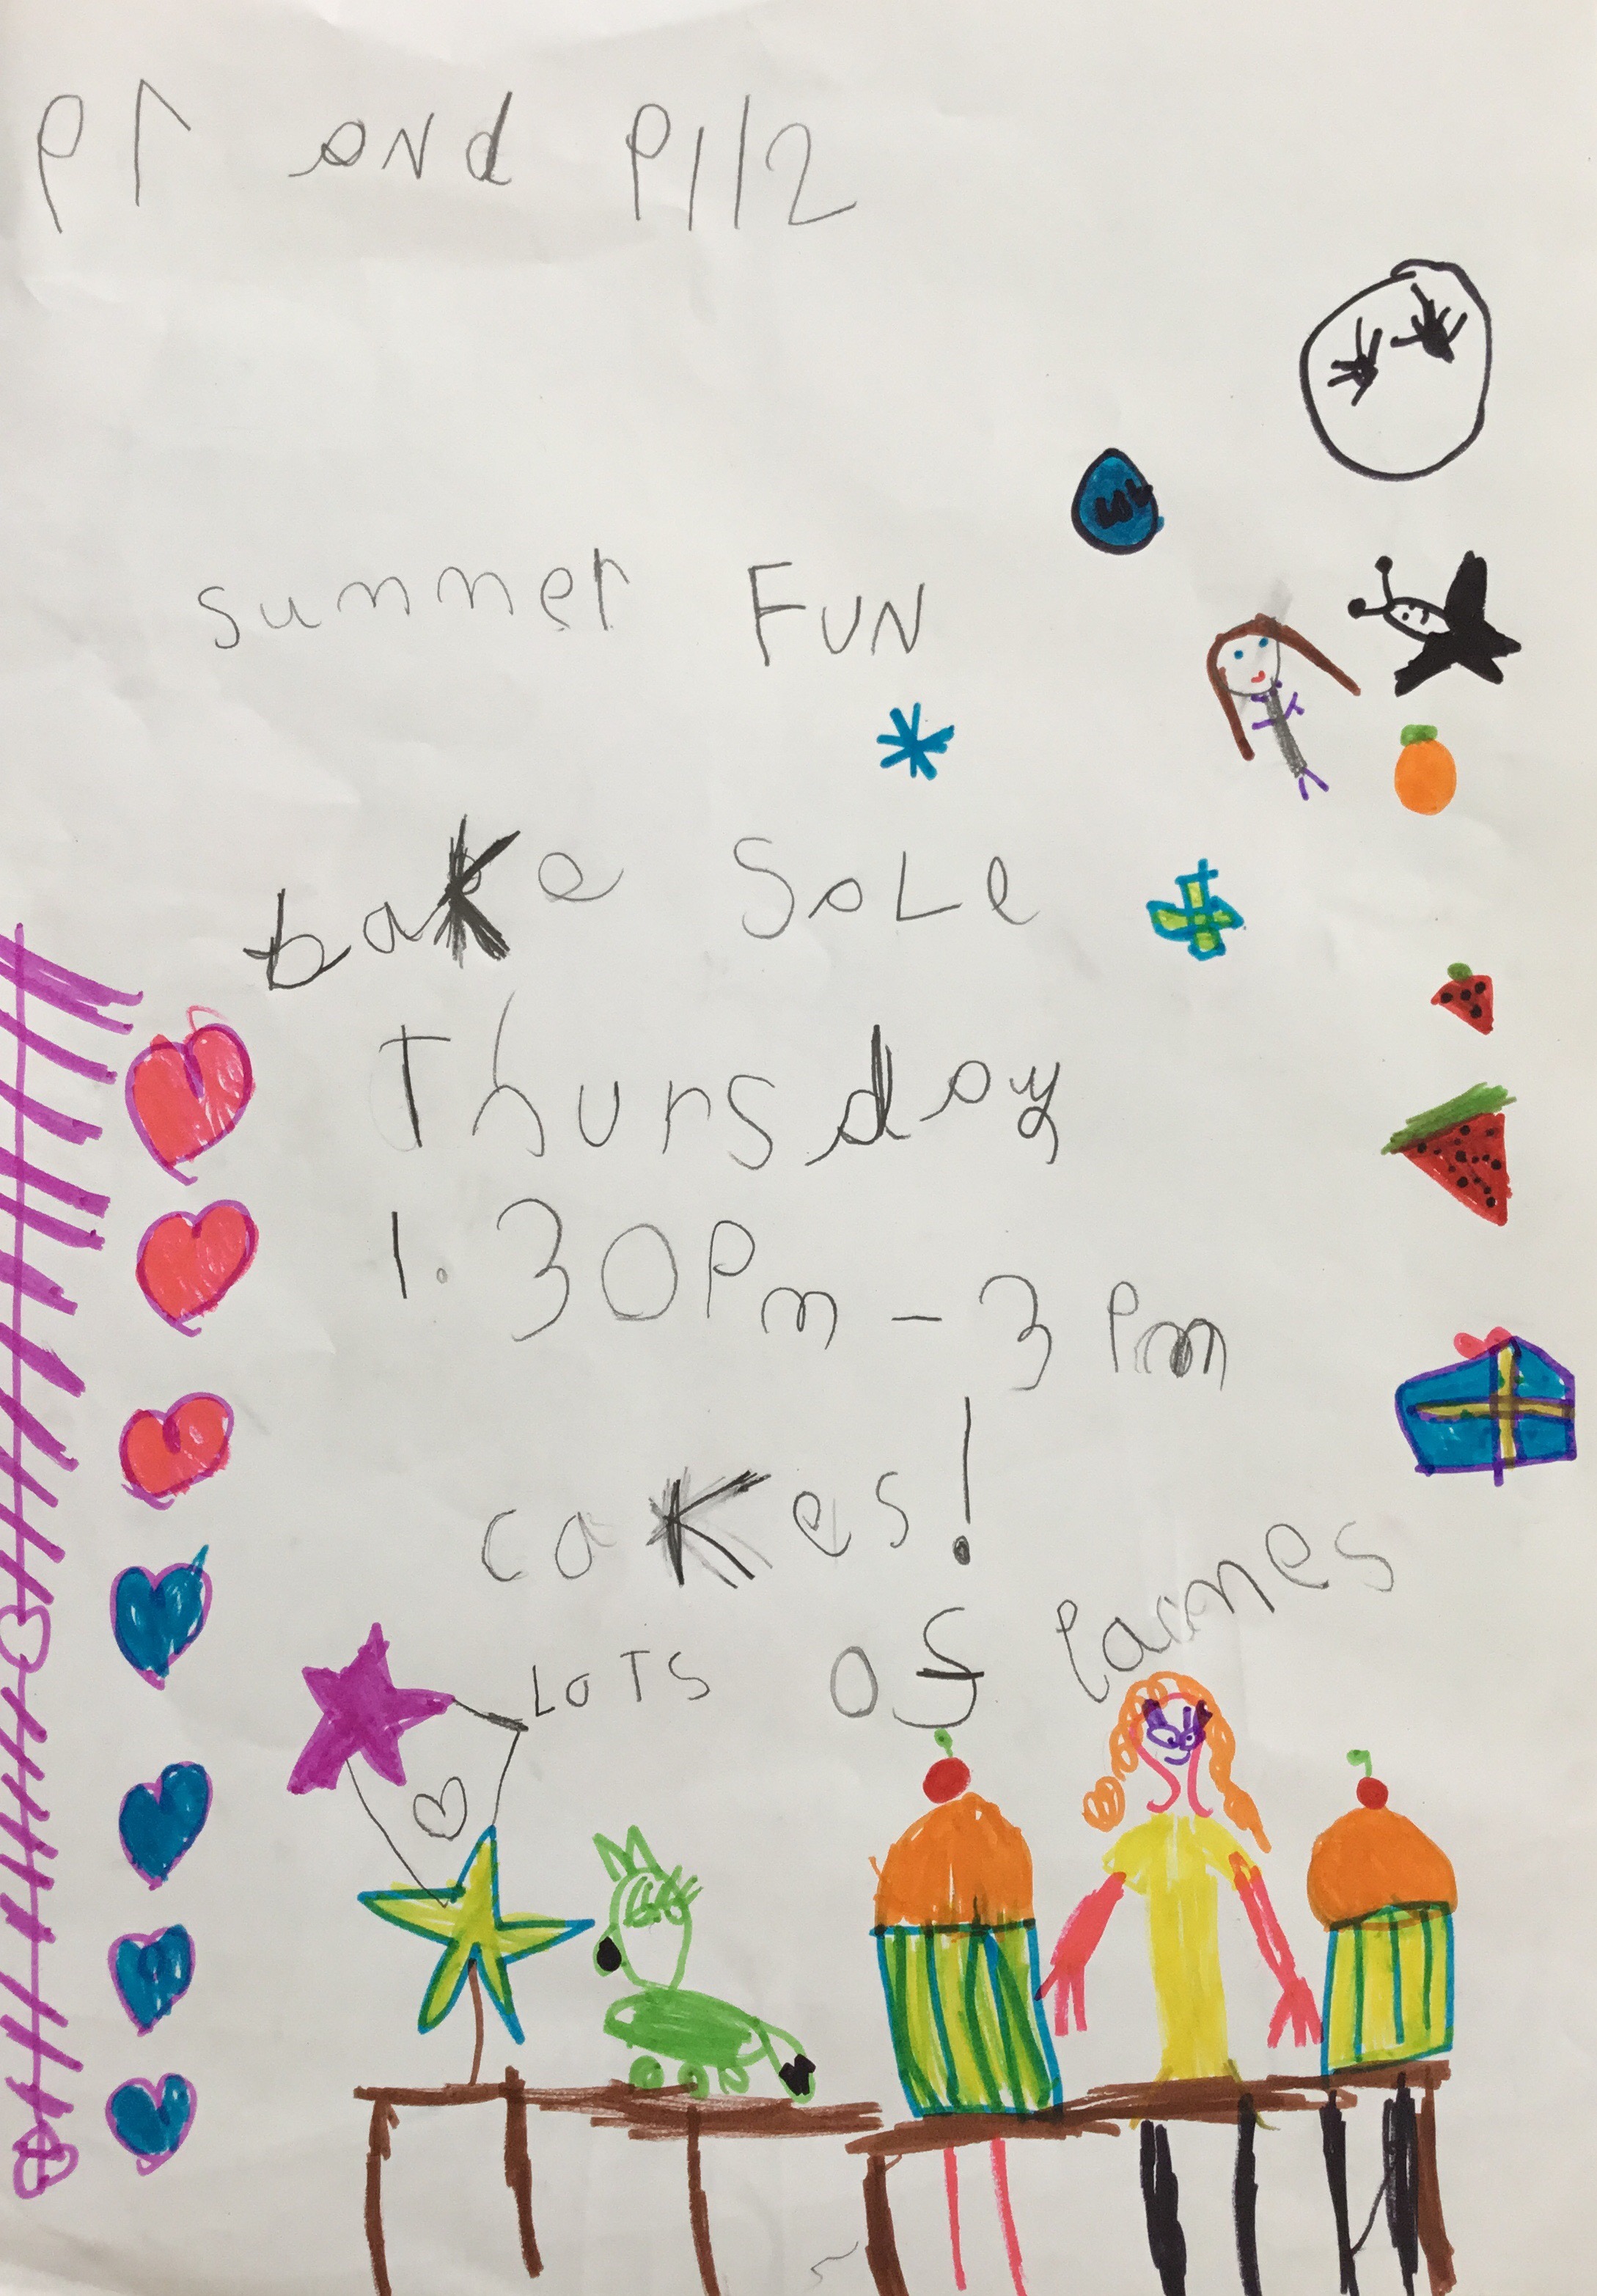 P1 and P1/2
summer FUN
bake SaLe
Thursday
1.30Pm - 3 Pm
cakes!
LOTS of